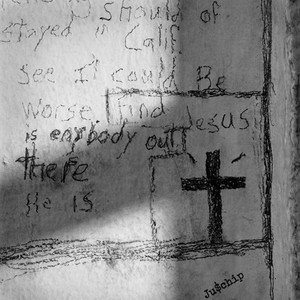 I should of
stayed in Calif.
see It could Be
worse, find Jesus
is enybody out
there
He is
Ju$chip